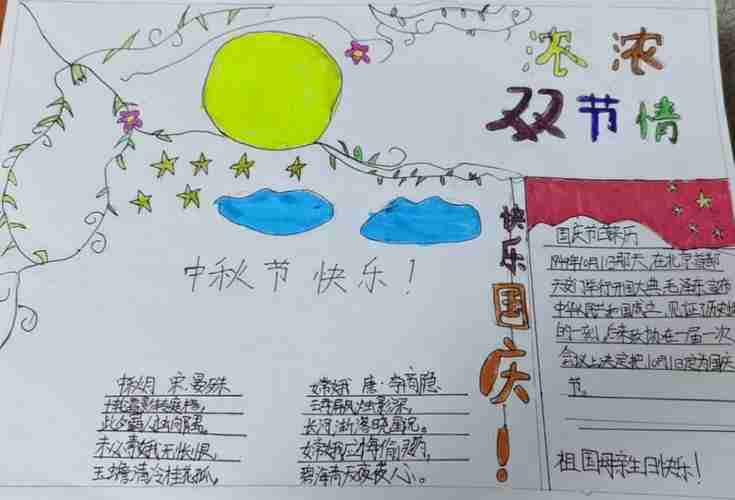 浓浓
双节情
中秋节快乐！
快乐国庆！
国庆节的来历
1949年10月1日那天,在北京首都
天安门举行开国大典,毛泽东宣布
中华人民共和国成立,见证了历史性
的一刻,后来政协在一届一次
会议上决定把10月1日定为国庆
节。
祖国母亲生日快乐！
中秋月 宋·晏殊
此夕羁人独向隅。
未必素娥无怅恨,
玉蟾清冷桂花孤。
嫦娥 唐·李商隐
云母屏风烛影深,
长河渐落晓星沉。
嫦娥应悔偷灵药,
碧海青天夜夜心。